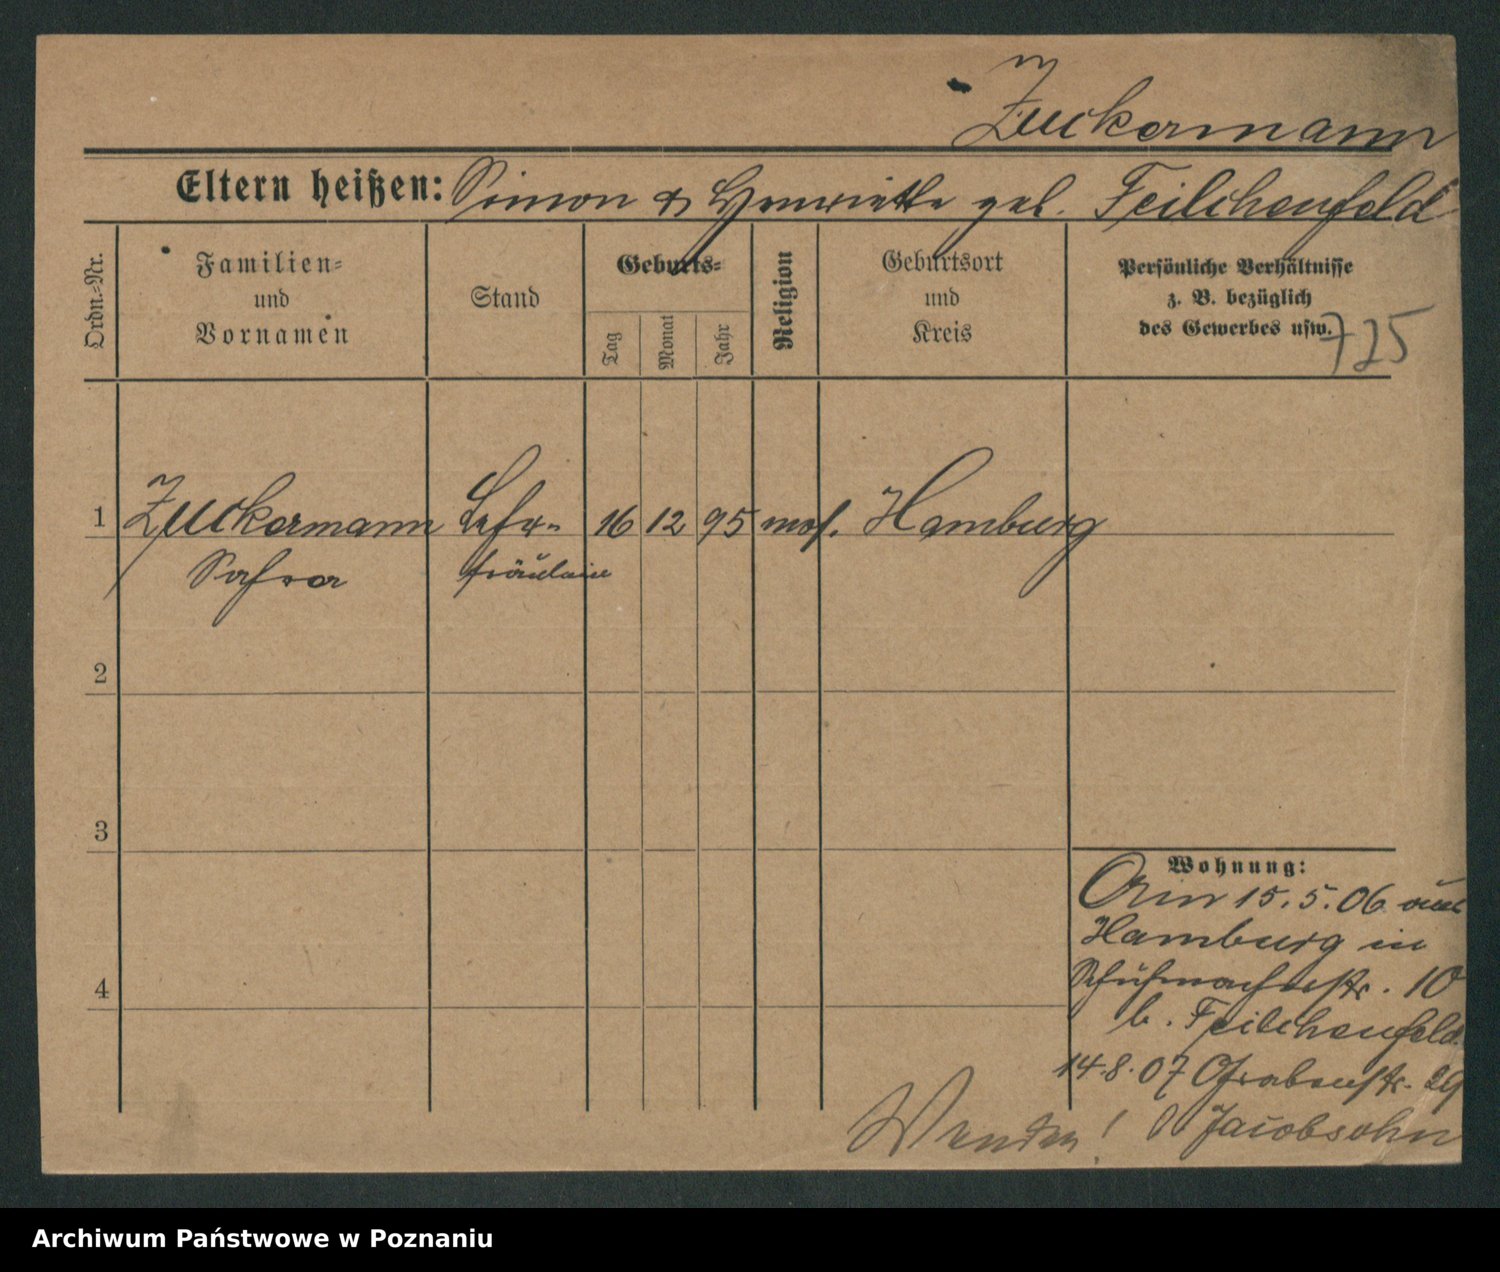 Zuckermann
Eltern heißen: Simon & Henriette geb. Feilchenfeld
Ordn.-Nr.
Familien-
und
Vornamen
Stand
Geburts-
Tag
Monat
Jahr
Religion
Geburtsort
und
Kreis
Persönliche Verhältnisse
z. B. bezüglich
des Gewerbes usw.
725
1 Zuckermann Lehr- 16 12 95 mos. Hamburg
fräulein
2
3
4
Wohnung:
15. 5. 06 aus
Hamburg in
Schuhmacherstr. 10
b. Feilchenfeld
14.8.07 Grabenstr. 29
b Jacobsohn
Wenden!
Archiwum Państwowe w Poznaniu